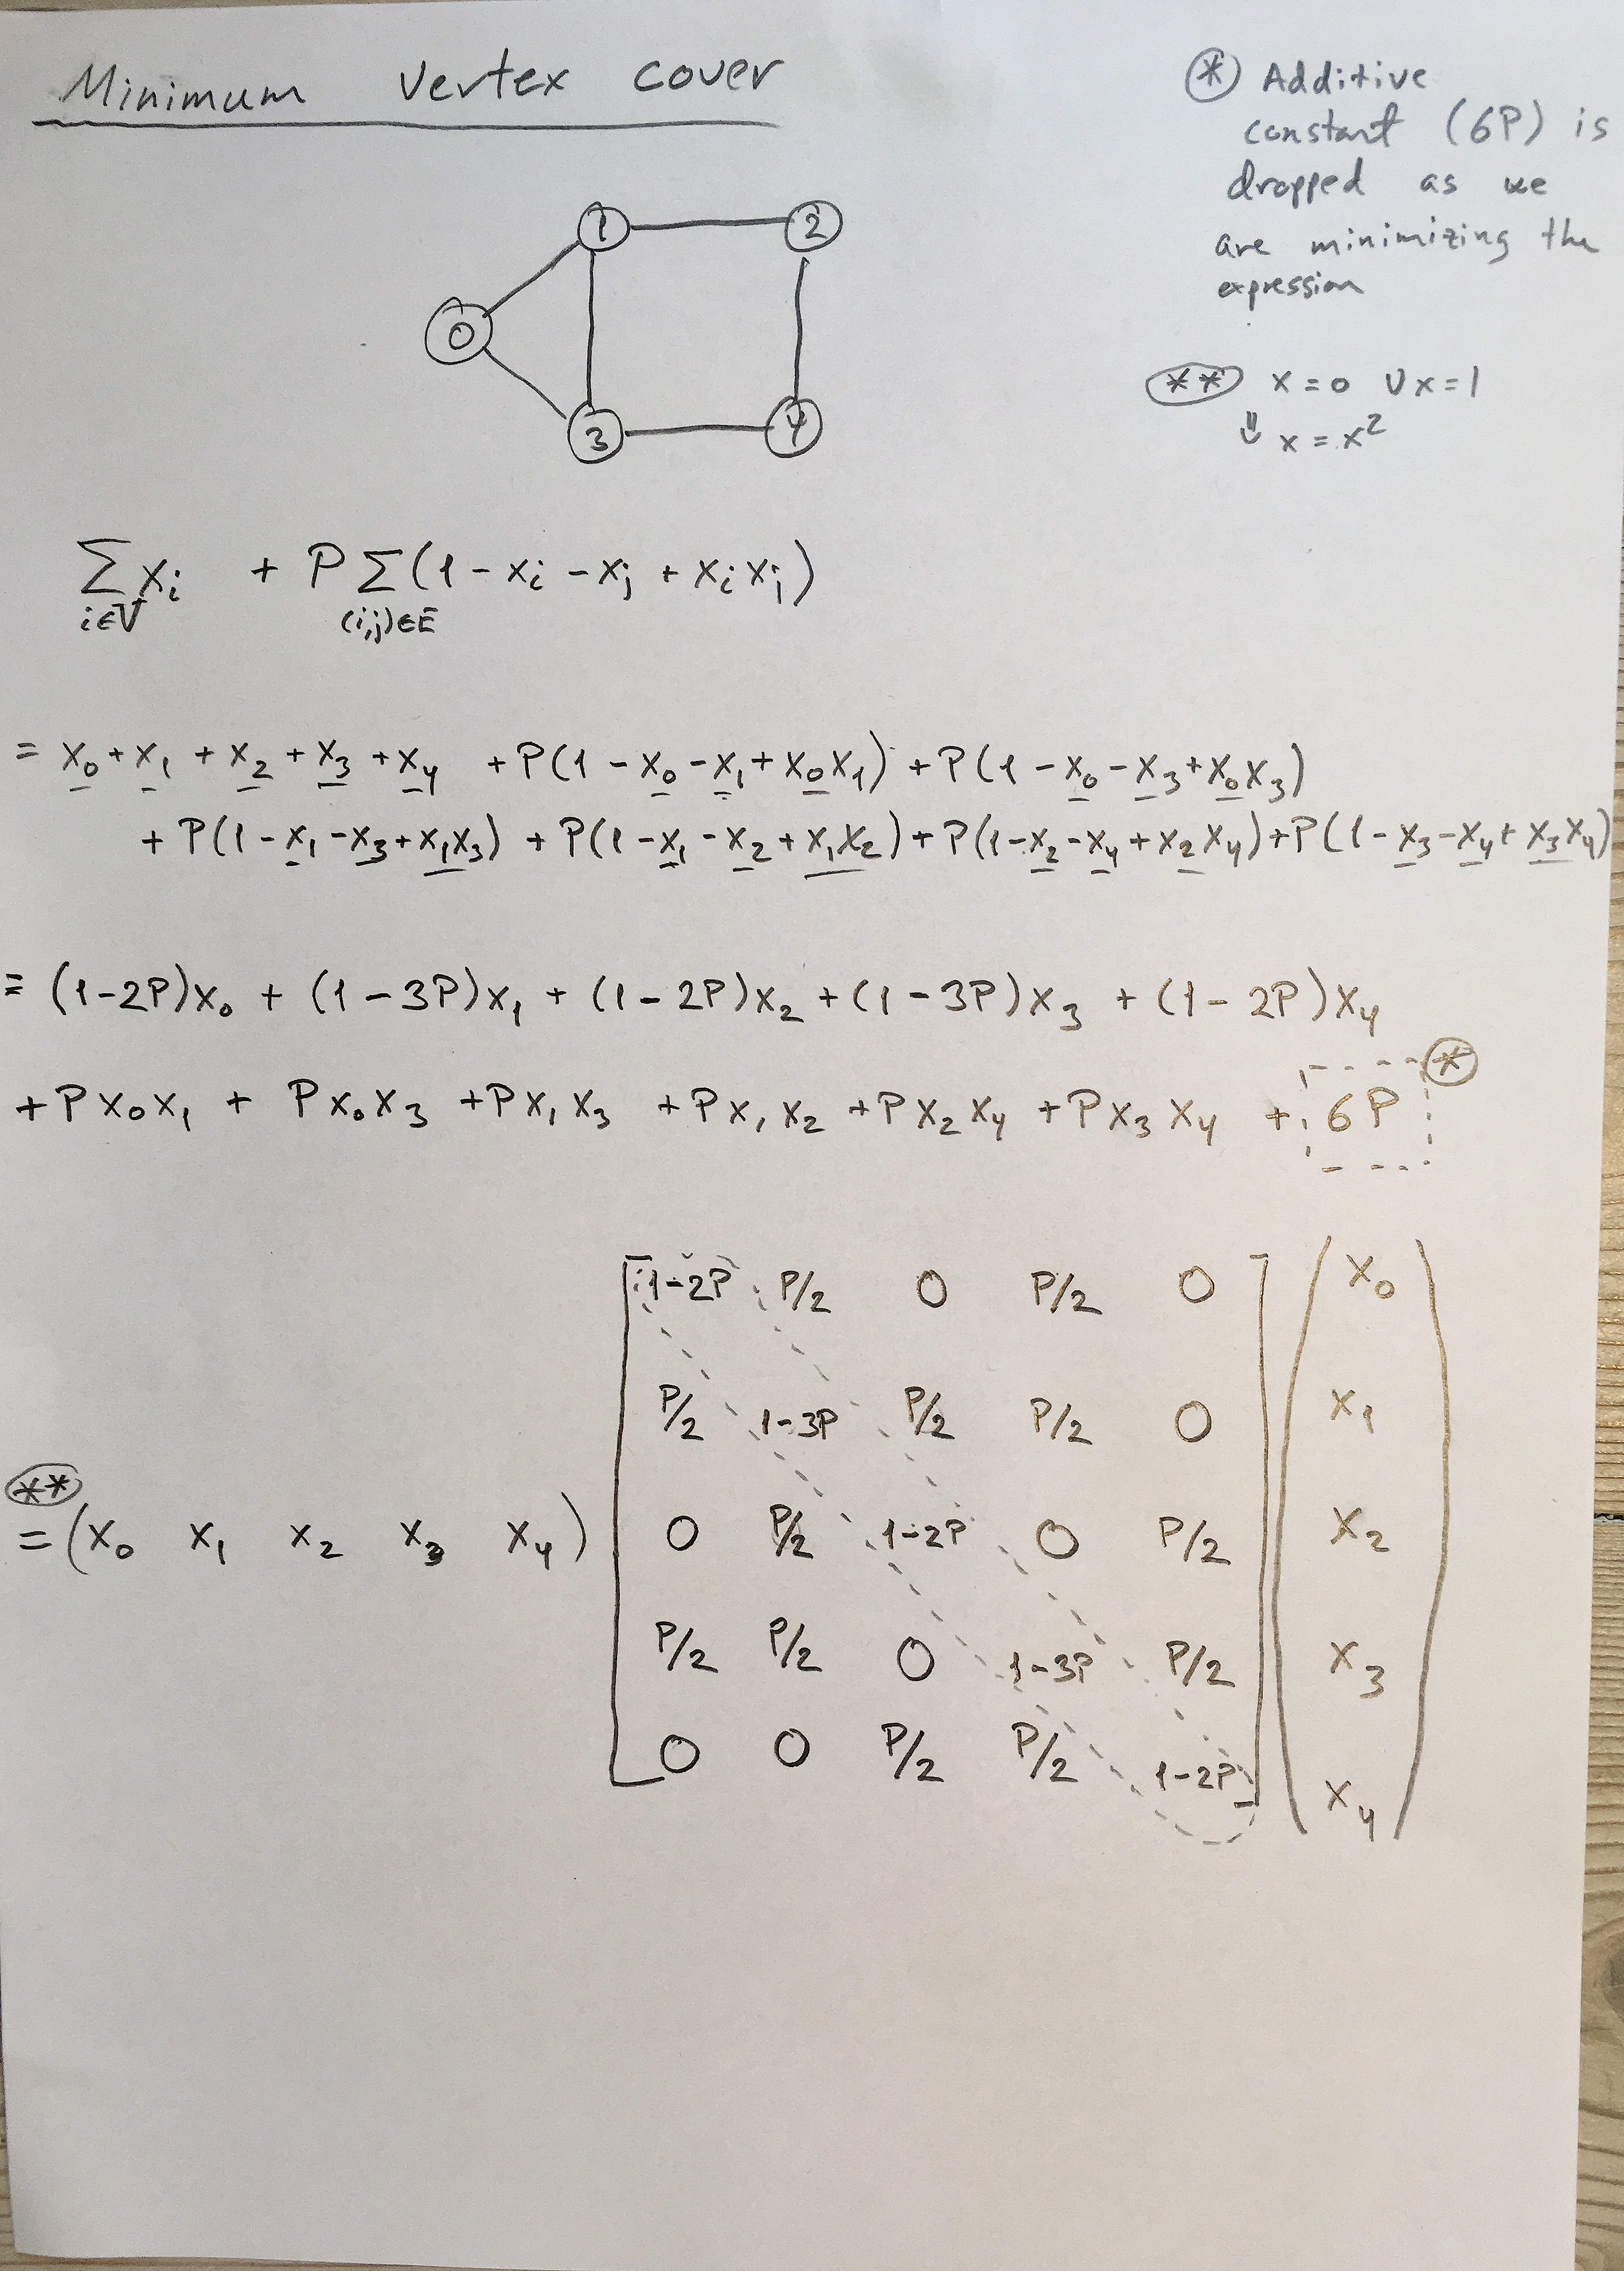 Minimum vertex cover
⊛ Additive
constant (6P) is
dropped as we
are minimizing the
expression
** x = 0 ∪ x = 1
⇓ x = x²
1 2
0
3 4
∑ xᵢ + P ∑ (1 - xᵢ - xⱼ + xᵢ xⱼ)
i∈V (i,j)∈E
= x₀ + x₁ + x₂ + x₃ + x₄ + P(1 - x₀ - x₁ + x₀x₁) + P(1 - x₀ - x₃ + x₀x₃)
+ P(1 - x₁ - x₃ + x₁x₃) + P(1 - x₁ - x₂ + x₁x₂) + P(1 - x₂ - x₄ + x₂x₄) + P(1 - x₃ - x₄ + x₃x₄)
= (1-2P)x₀ + (1-3P)x₁ + (1-2P)x₂ + (1-3P)x₃ + (1-2P)x₄
+ P x₀x₁ + P x₀x₃ + P x₁x₃ + P x₁x₂ + P x₂x₄ + P x₃x₄ + 6P ⊛
1-2P P/2 0 P/2 0 x₀
P/2 1-3P P/2 P/2 0 x₁
**
= (x₀ x₁ x₂ x₃ x₄) 0 P/2 1-2P 0 P/2 x₂
P/2 P/2 0 1-3P P/2 x₃
0 0 P/2 P/2 1-2P x₄